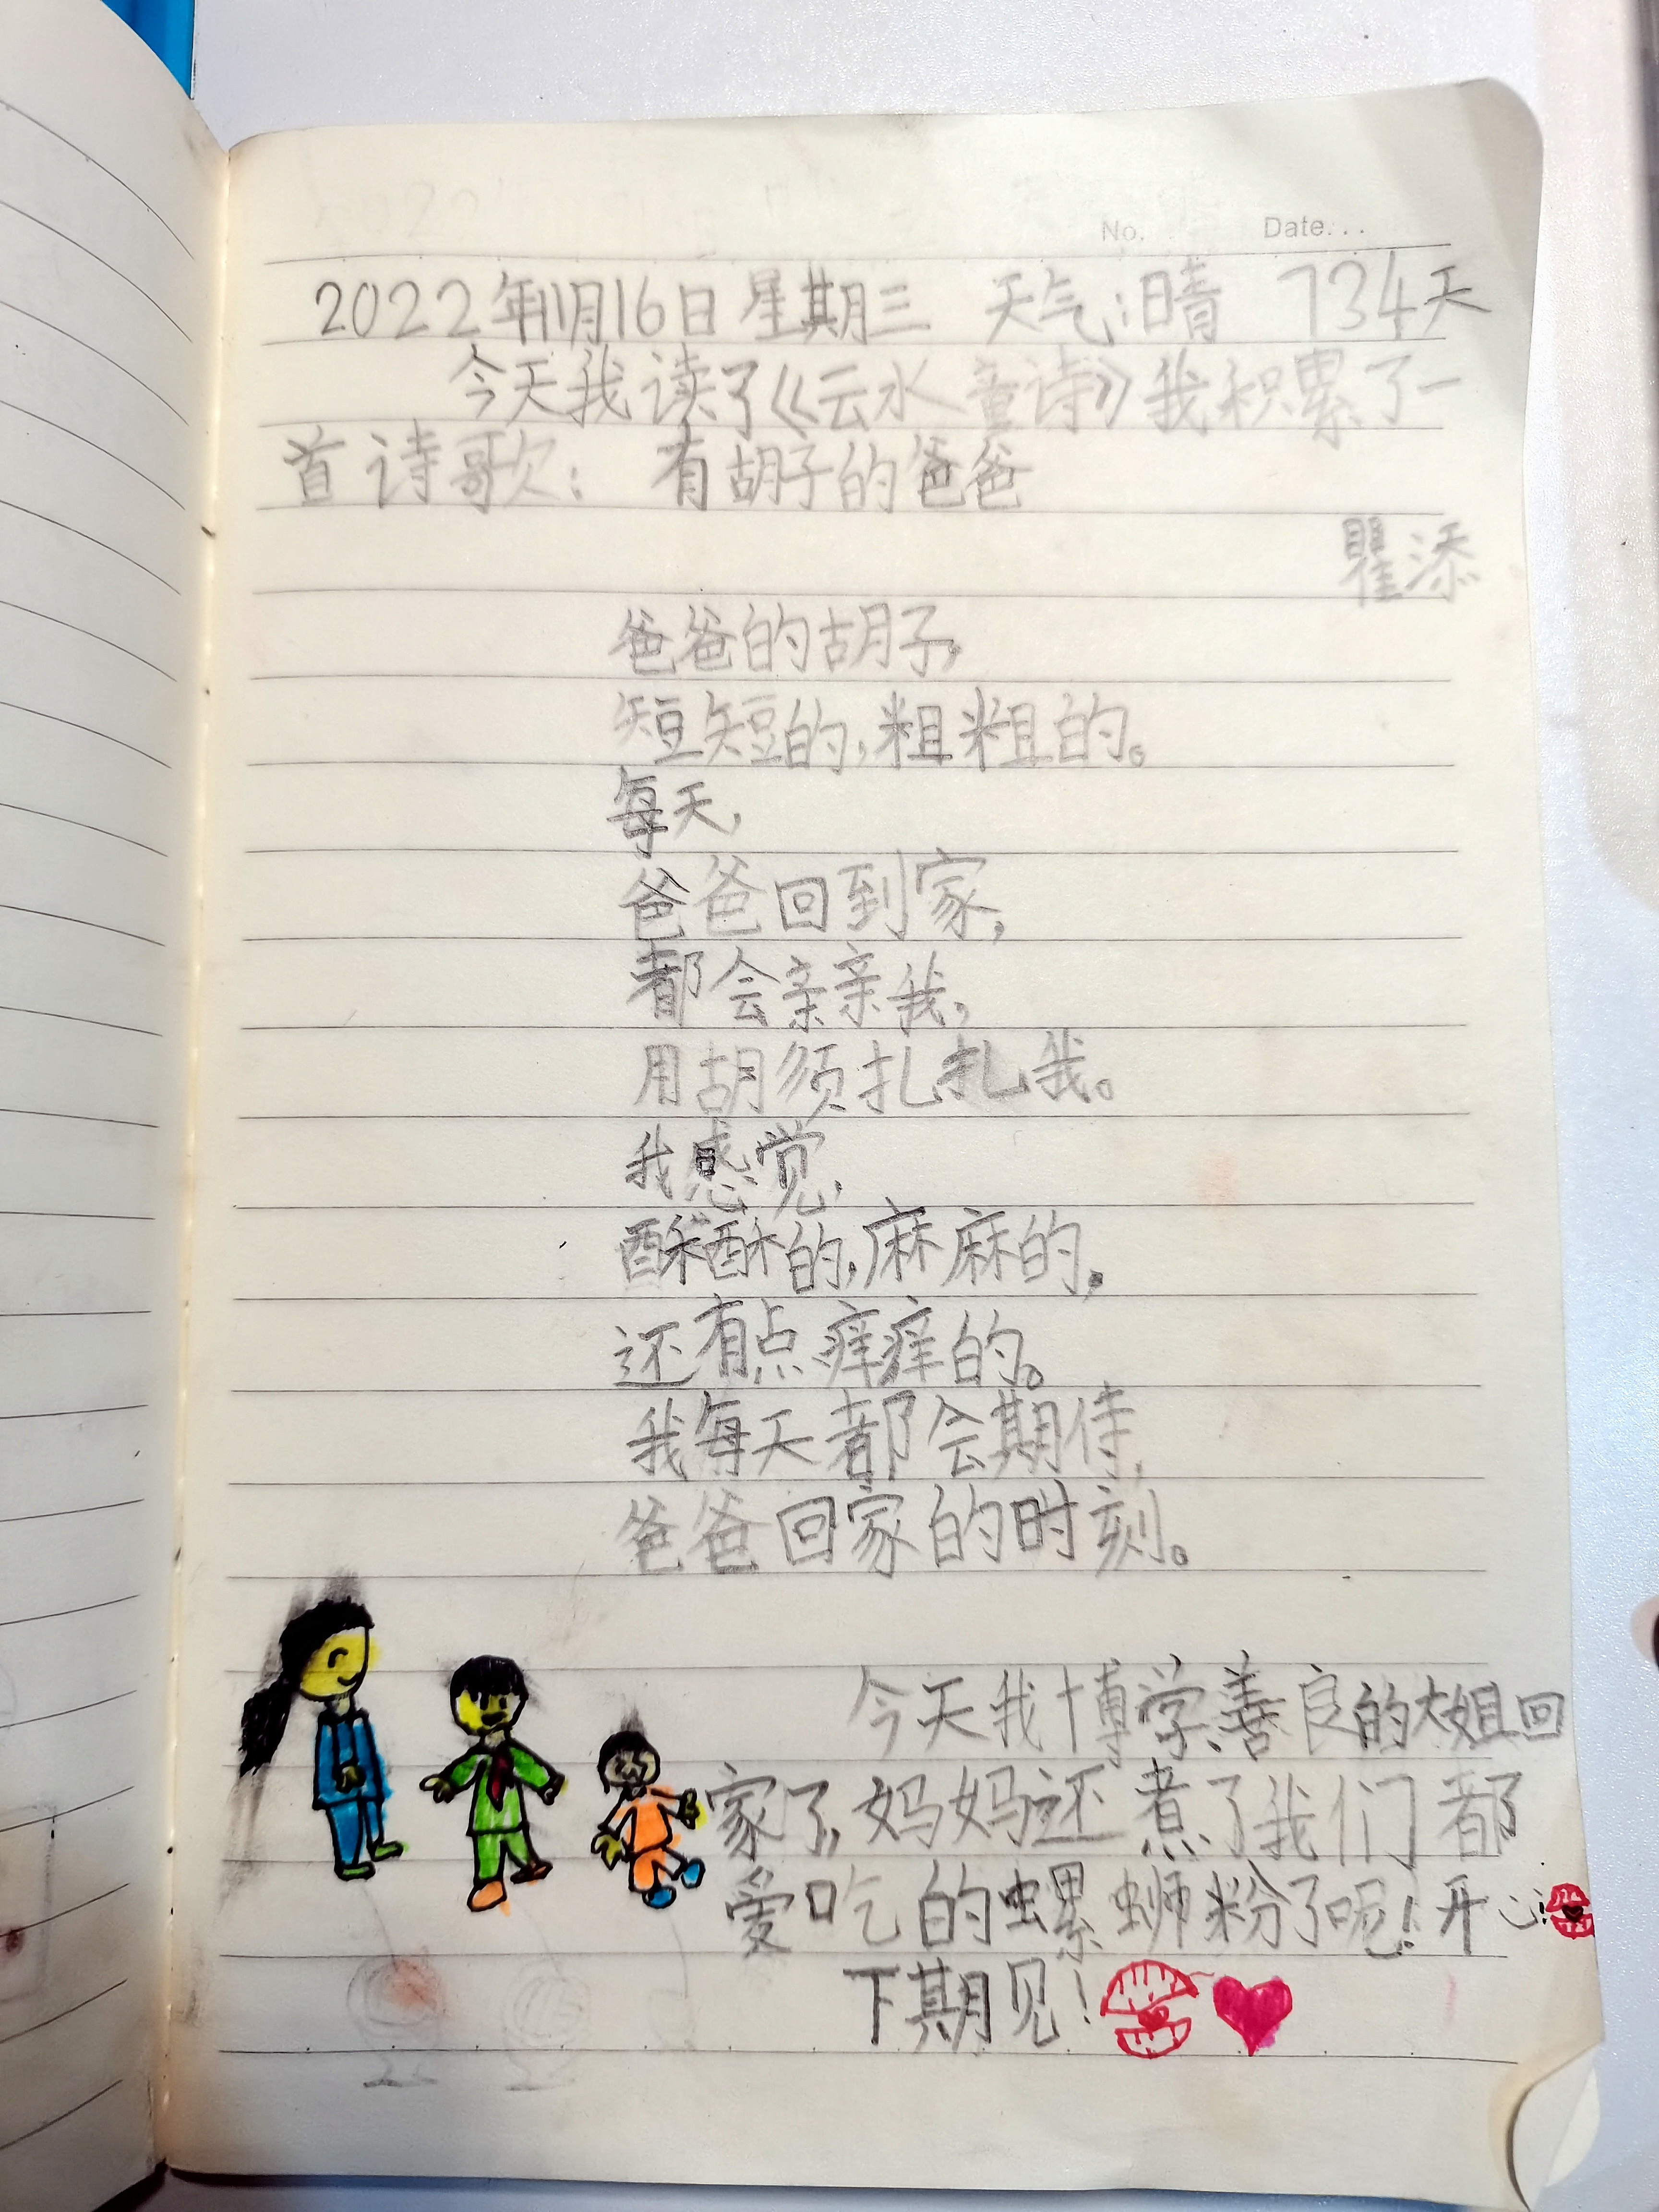 No. Date...
2022年11月16日 星期三 天气:晴 734天
今天我读了《云水童诗》我积累了一
首诗歌: 有胡子的爸爸
瞿添
爸爸的胡子,
短短的,粗粗的。
每天,
爸爸回到家,
都会亲亲我,
用胡须扎扎我。
我感觉,
酥酥的,麻麻的,
还有点痒痒的。
我每天都会期待,
爸爸回家的时刻。
今天我博学、善良的大姐回
家了,妈妈还煮了我们都
爱吃的螺蛳粉了呢!开心!
下期见!